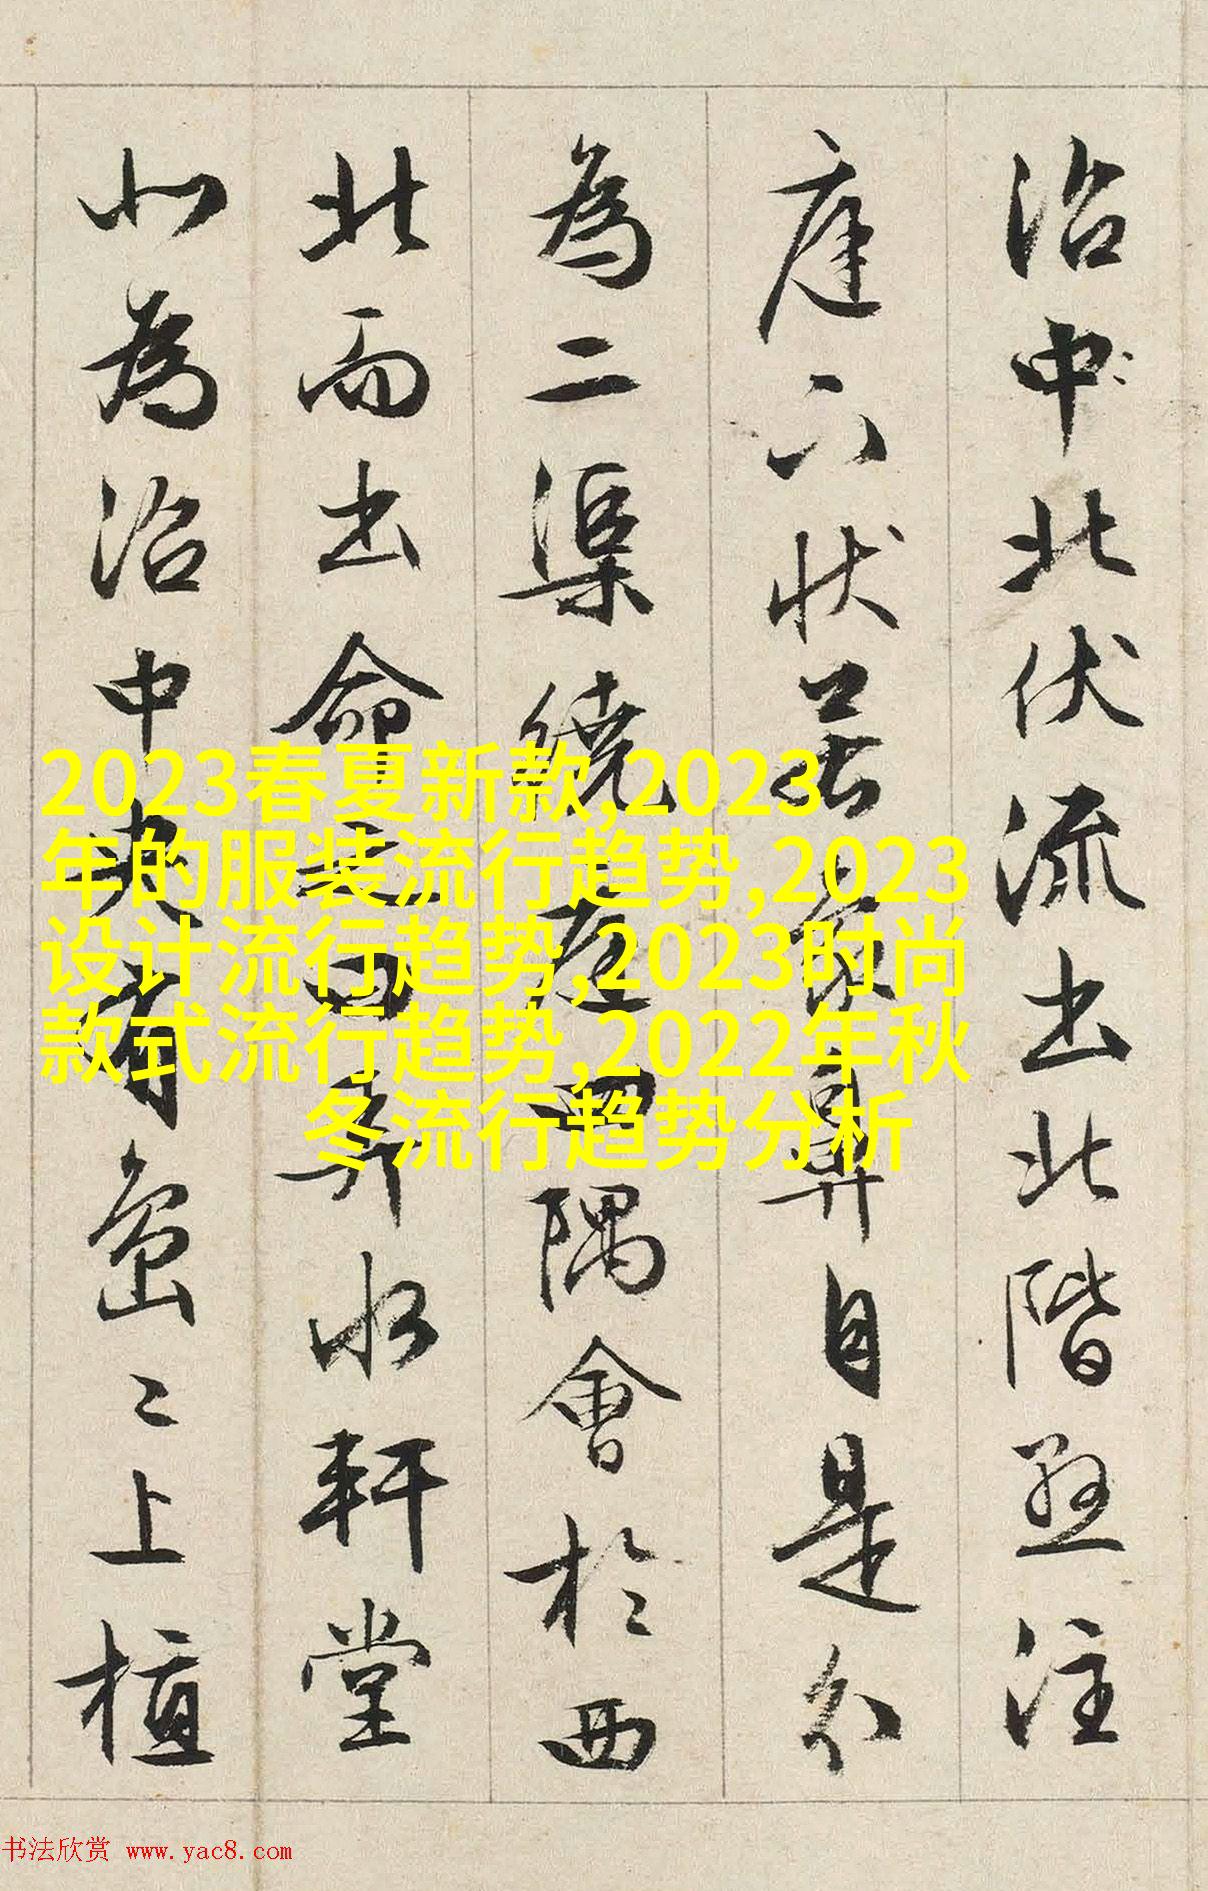 沼中北伏流出北階懸注
庭下狀若象鼻自是分
為二渠繞庭四隅會於西
北而出命之曰弄水軒堂
北為沼中央有島〻上植
2023春夏新款,2023
年的服装流行趋势,2023
设计流行趋势,2023时尚
款式流行趋势,2022年秋
冬流行趋势分析
书法欣赏 www.yac8.com